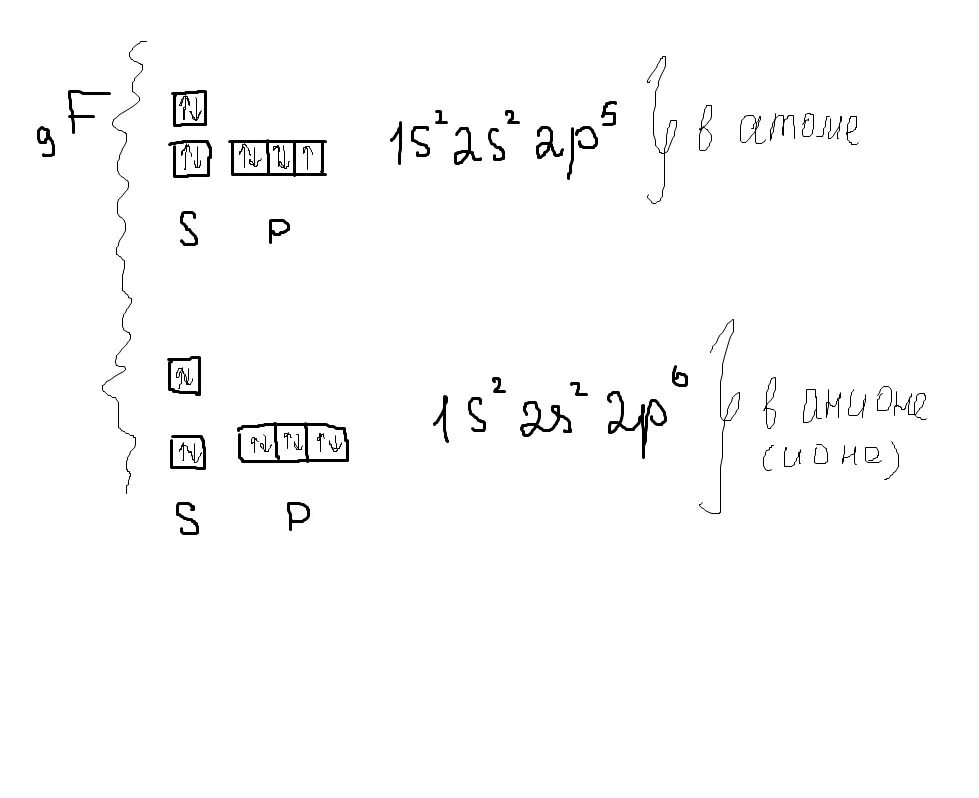 ₉F
1s² 2s² 2p⁵ в атоме
S P
1s² 2s² 2p⁶ в анионе
(ионе)
S P